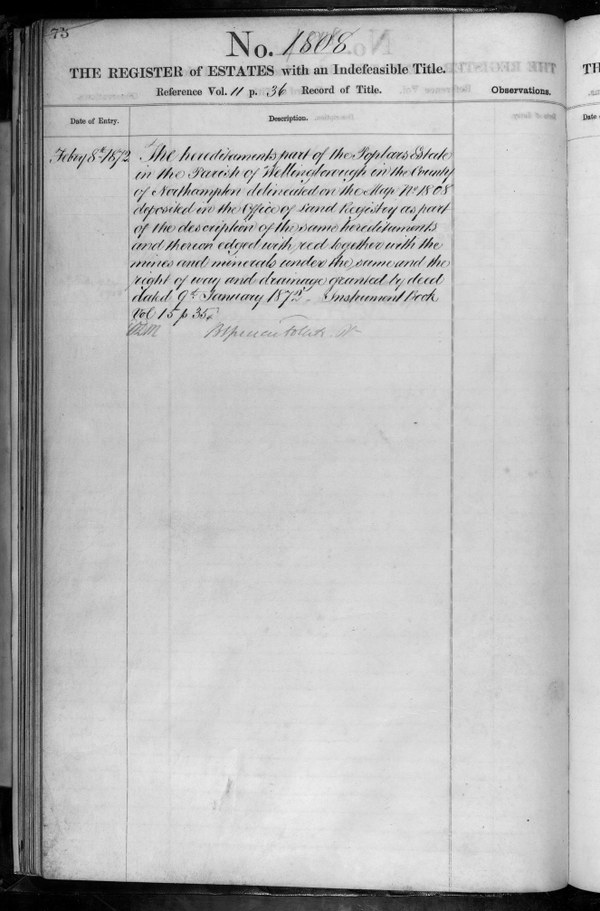 75
No. 1808
THE REGISTER of ESTATES with an Indefeasible Title.
Reference Vol. 11 p. 36 Record of Title.
Observations.
Date of Entry.
Description.
Febry 8th 1872
The hereditaments part of the Poplars Estate
in the Parish of Wellingborough in the County
of Northampton delineated on the Map No 1808
deposited in the Office of Land Registry as part
of the description of the same hereditaments
and thereon edged with red together with the
mines and minerals under the same and the
right of way and drainage granted by deed
dated 9th January 1872. Instrument Book
Vol 15 p 35.
TH
Date